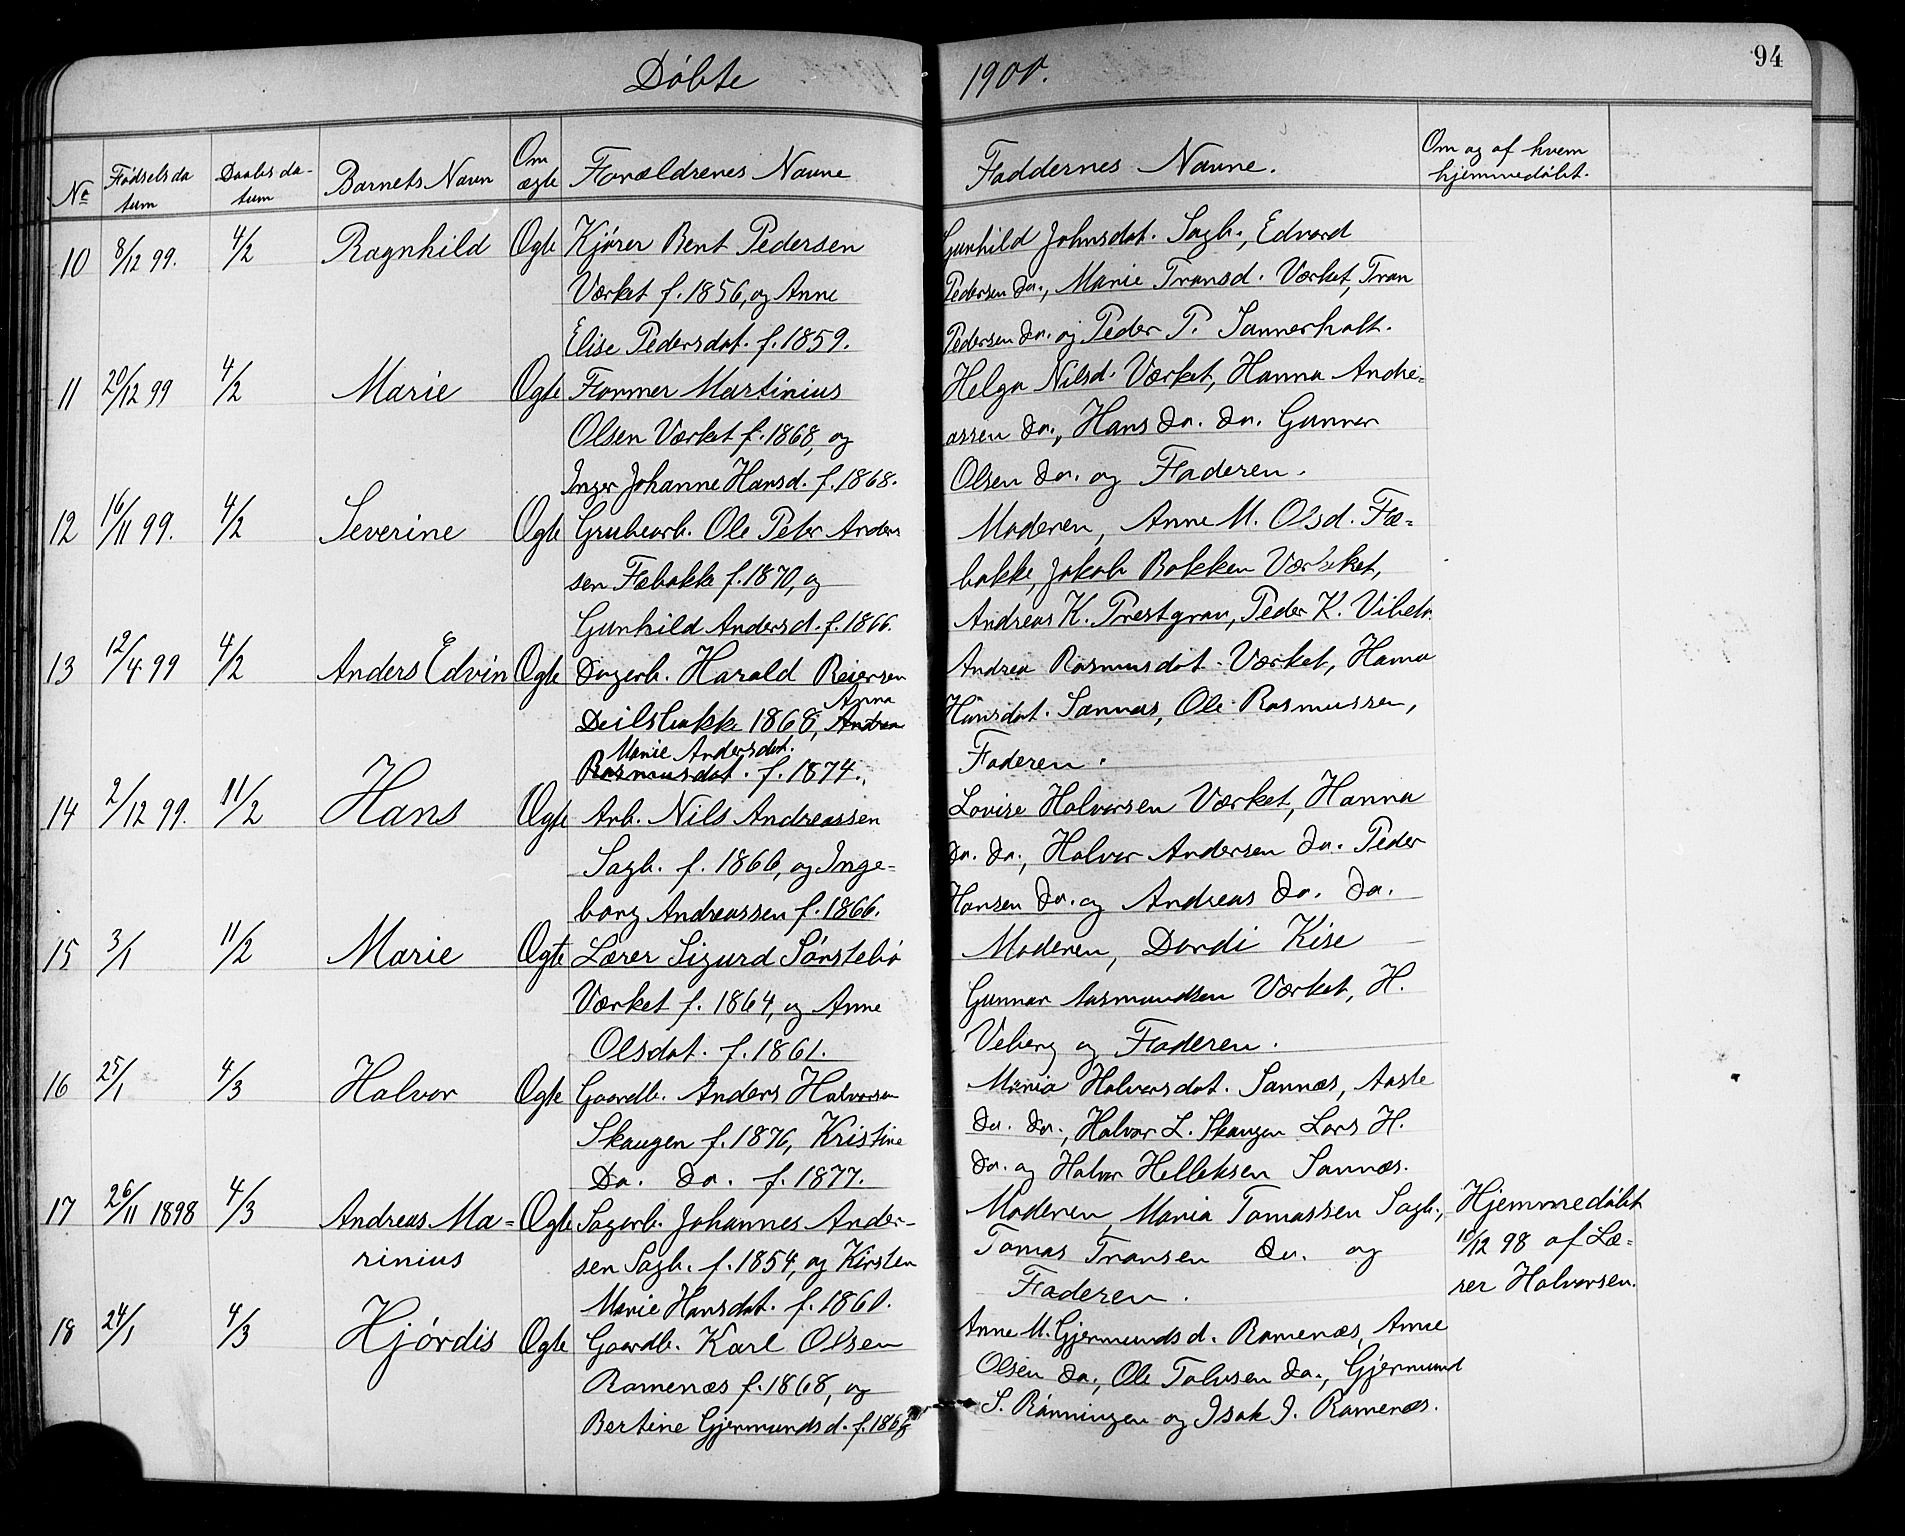 94
Døbte 1900.
No Fødselsda Daabsda- Barnets Navn Om Forældrenes Navne Faddernes Navne. Om og af hvem
tum tum ægte hjemmedøbt.
10 8/12 99. 4/2 Ragnhild Ogte Kjører Bent Pedersen Gunhild Johnsdat. Sagb., Edvard
Værket f. 1856, og Anne Pedersen do., Marie Transd. Værket, Tran
Elise Pedersdat. f. 1859. Pedersen do. og Peder P. Sannerholt.
11 20/12 99 4/2 Marie Ogte Formmer Martinius Helga Nilsd. Værket, Hanna Andre-
Olsen Værket f. 1868, og assen do., Hans do. do. Gunner
Inger Johanne Hansd. f. 1868. Olsen do. og Faderen.
12 16/11 99. 4/2 Severine Ogte Grubearb. Ole Peter Anders Moderen, Anne M. Olsd. Fæ-
sen Fæbakke f. 1870, og bakke, Jakob Bakken Værket,
Gunhild Andersd. f. 1866. Andreas K. Prestgrav, Peder K. Vibeto.
13 12/4 99 4/2 Anders Edvin Ogte Dagarb. Harald Reiersen Andrea Rasmusdat. Værket, Hanna
Anna
Deilsbakke 1868, Andrea Hansdat. Sannæs, Ole Rasmussen,
Marie Andersdat.
Rasmusdat. f. 1874. Faderen.
14 2/12 99. 11/2 Hans Ogte Arb. Nils Andreassen Lovise Halvorsen Værket, Hanna
Sagb. f. 1866, og Inge- do. do., Halvor Andersen do. Peder
borg Andreassen f. 1866. Hansen do. og Andreas do. do.
15 3/1 11/2 Marie Ogte Lærer Sigurd Sørstebø Moderen, Dordi Kise
Værket f. 1864, og Anne Gunnar Aasmundsen Værket, H.
Olsdat. f. 1861. Veberg og Faderen.
16 25/1 4/3 Halvor Ogte Gaardb. Anders Halvorsen Maria Halvorsdat. Sannæs, Aaste
Skaugen f. 1876, Kristine do. do., Halvor L. Skaugen Lars H.
Do. Do. f. 1877. do. og Halvor Helleksen Sannæs.
17 26/11 1898 4/3 Andreas Ma- Ogte Sagarb. Johannes Ander- Moderen, Maria Tomassen Sagb., Hjemmedøbt
rinius sen Sagb. f. 1854, og Kirsten Tomas Transen do. og 10/12 98 af Læ-
Marie Hansdat. f. 1860. Faderen. rer Halvorsen.
18 24/1 4/3 Hjørdis Ogte Gaardb. Karl Olsen Anne M. Gjermundsd. Ramenæs, Anne
Ramenæs f. 1868, og Olsen do., Ole Talvsen do., Gjermund
Bertine Gjermundsd. f. 1868 S. Rønningen og Isak I. Ramenæs.